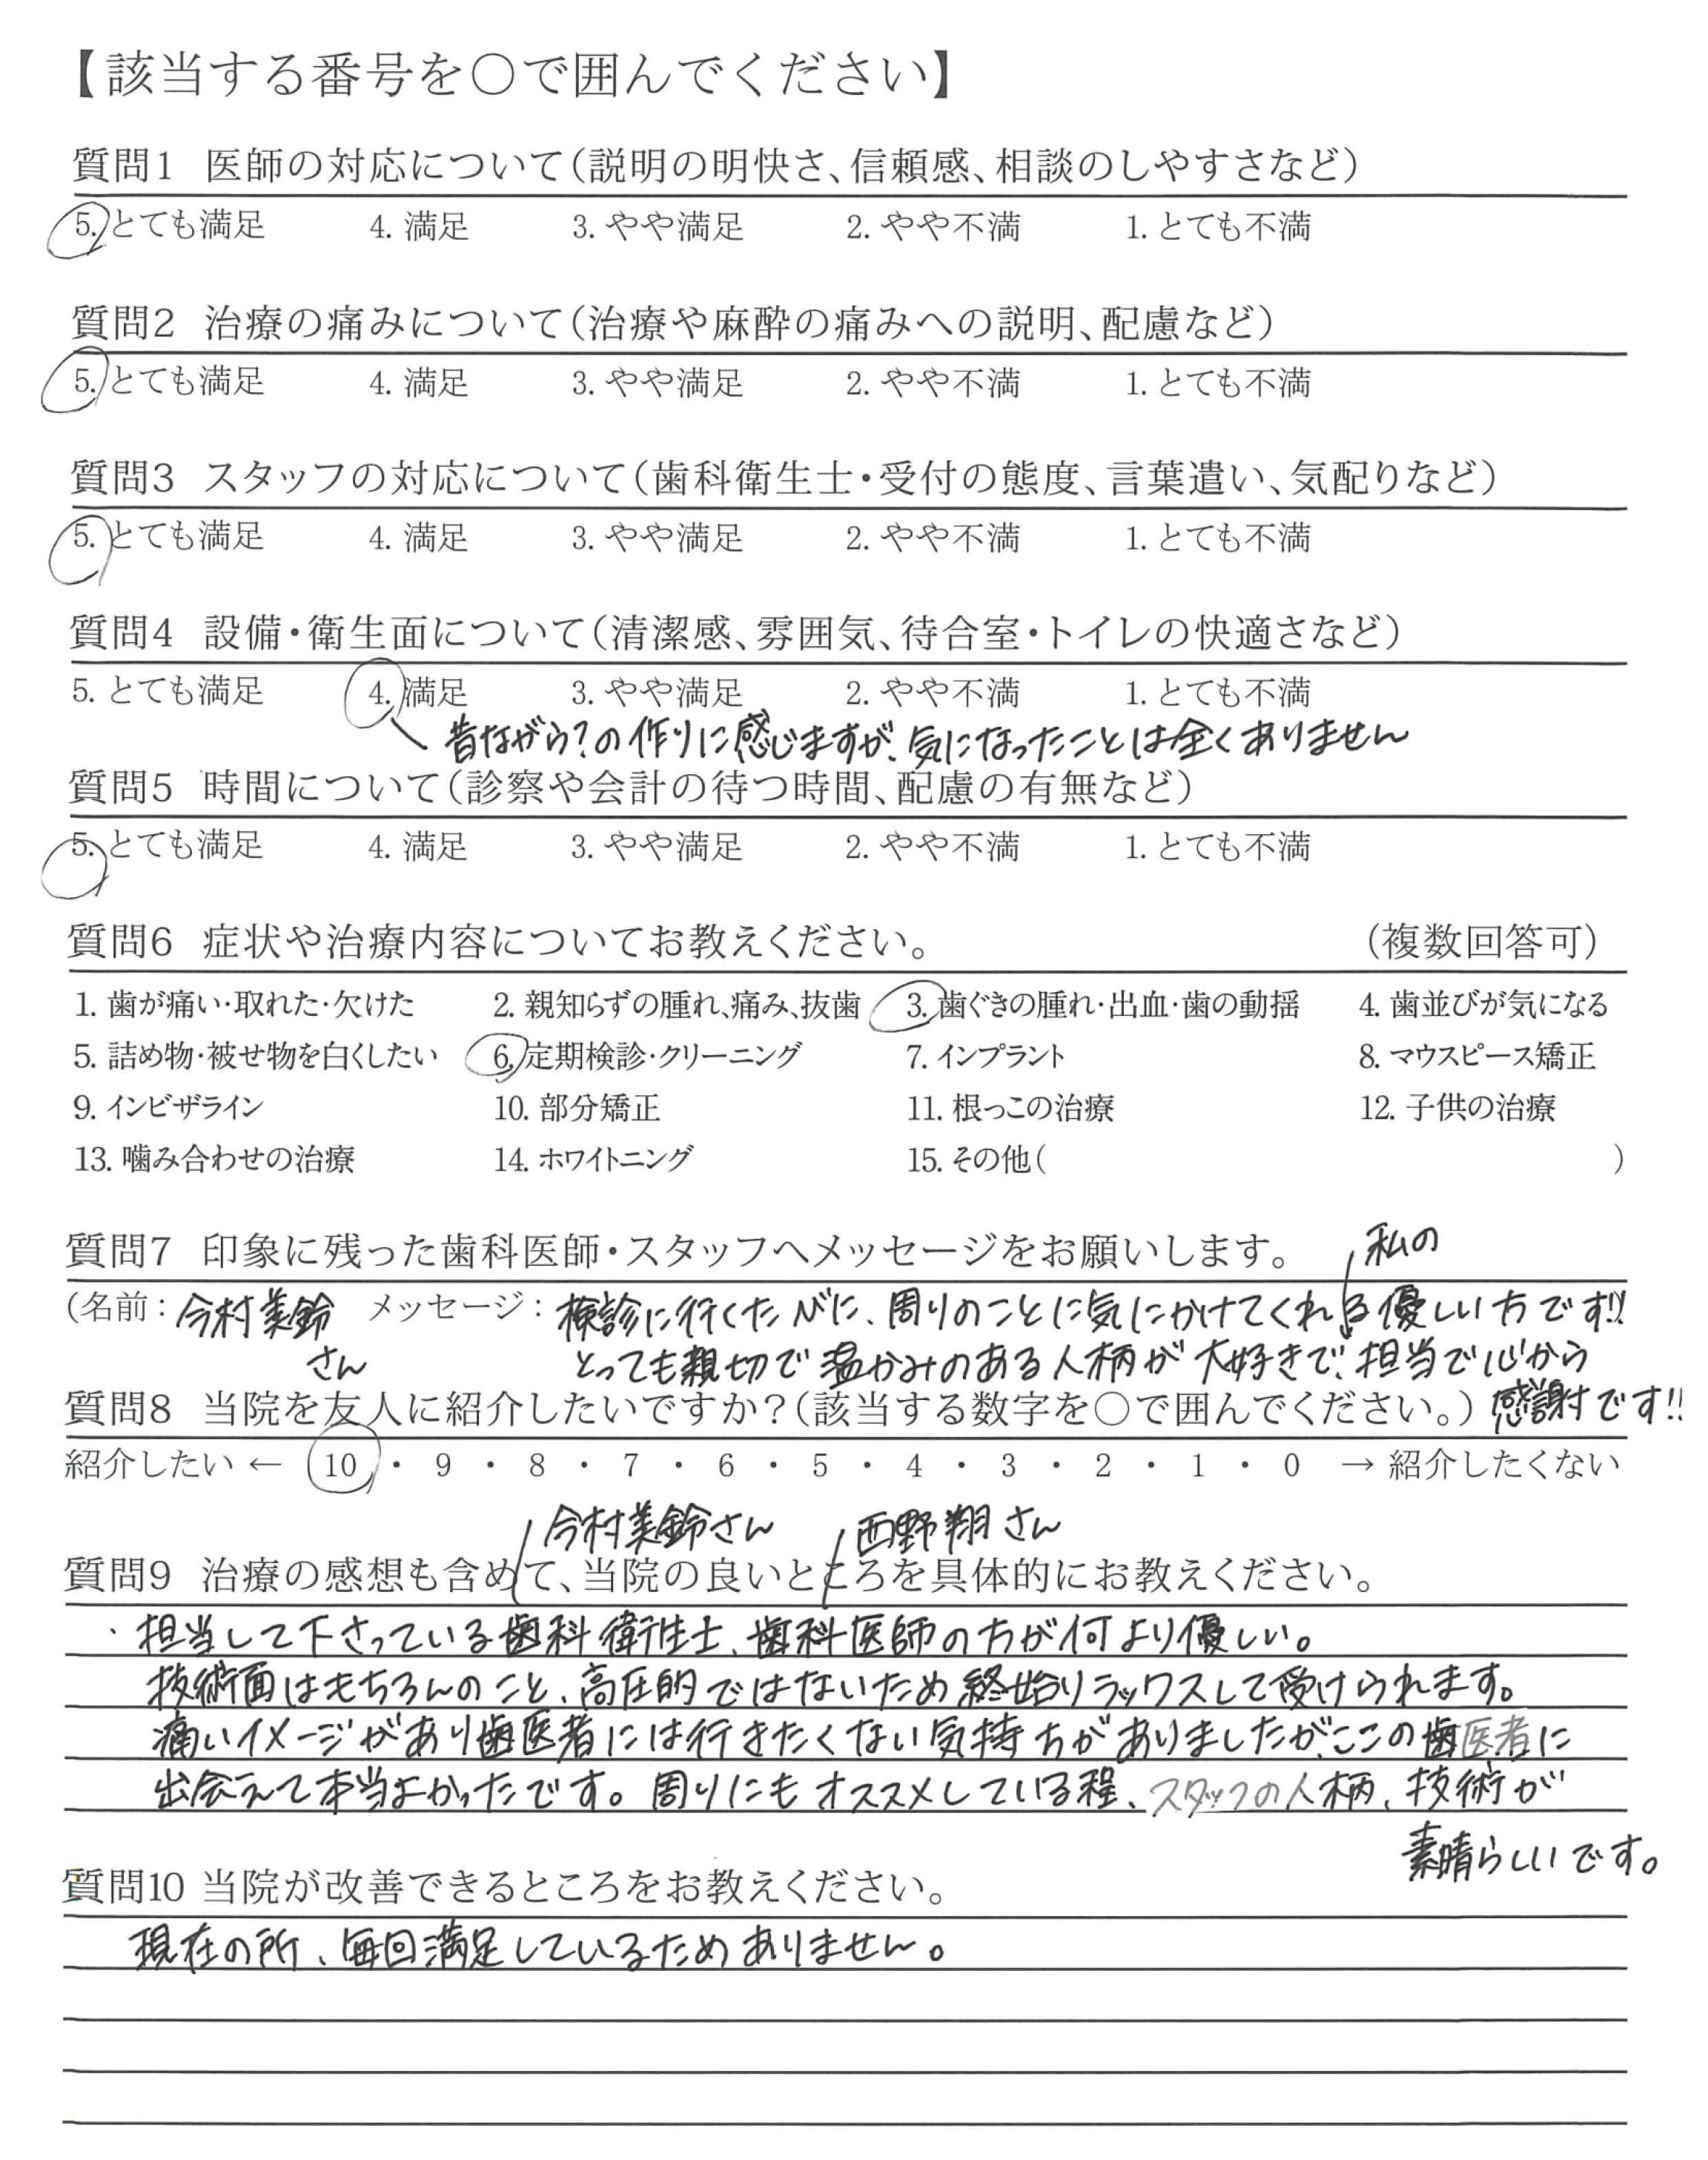 【該当する番号を〇で囲んでください】
質問1 医師の対応について(説明の明快さ、信頼感、相談のしやすさなど)
5. とても満足 4. 満足 3. やや満足 2. やや不満 1. とても不満
質問2 治療の痛みについて(治療や麻酔の痛みへの説明、配慮など)
5. とても満足 4. 満足 3. やや満足 2. やや不満 1. とても不満
質問3 スタッフの対応について(歯科衛生士・受付の態度、言葉遣い、気配りなど)
5. とても満足 4. 満足 3. やや満足 2. やや不満 1. とても不満
質問4 設備・衛生面について(清潔感、雰囲気、待合室・トイレの快適さなど)
5. とても満足 4. 満足 3. やや満足 2. やや不満 1. とても不満
昔ながら?の作りに感じますが、気になったことは全くありません
質問5 時間について(診察や会計の待つ時間、配慮の有無など)
5. とても満足 4. 満足 3. やや満足 2. やや不満 1. とても不満
質問6 症状や治療内容についてお教えください。 (複数回答可)
1. 歯が痛い・取れた・欠けた 2. 親知らずの腫れ、痛み、抜歯 3. 歯ぐきの腫れ・出血・歯の動揺 4. 歯並びが気になる
5. 詰め物・被せ物を白くしたい 6. 定期検診・クリーニング 7. インプラント 8. マウスピース矯正
9. インビザライン 10. 部分矯正 11. 根っこの治療 12. 子供の治療
13. 噛み合わせの治療 14. ホワイトニング 15. その他( )
質問7 印象に残った歯科医師・スタッフへメッセージをお願いします。
私の
(名前: 今村美鈴 メッセージ: 検診に行くたびに、周りのことに気にかけてくれる優しい方です!!
さん とっても親切で温かみのある人柄が大好きで、担当で心から
質問8 当院を友人に紹介したいですか?(該当する数字を〇で囲んでください。) 感謝です!!
紹介したい ← 10 ・ 9 ・ 8 ・ 7 ・ 6 ・ 5 ・ 4 ・ 3 ・ 2 ・ 1 ・ 0 → 紹介したくない
今村美鈴さん 西野翔さん
質問9 治療の感想も含めて、当院の良いところを具体的にお教えください。
・担当して下さっている歯科衛生士、歯科医師の方が何より優しい。
技術面はもちろんのこと、高圧的ではないため終始リラックスして受けられます。
痛いイメージがあり歯医者には行きたくない気持ちがありましたが、ここの歯医者に
出会えて本当よかったです。周りにもオススメしている程、スタッフの人柄、技術が
素晴らしいです。
質問10 当院が改善できるところをお教えください。
現在の所、毎回満足しているためありません。